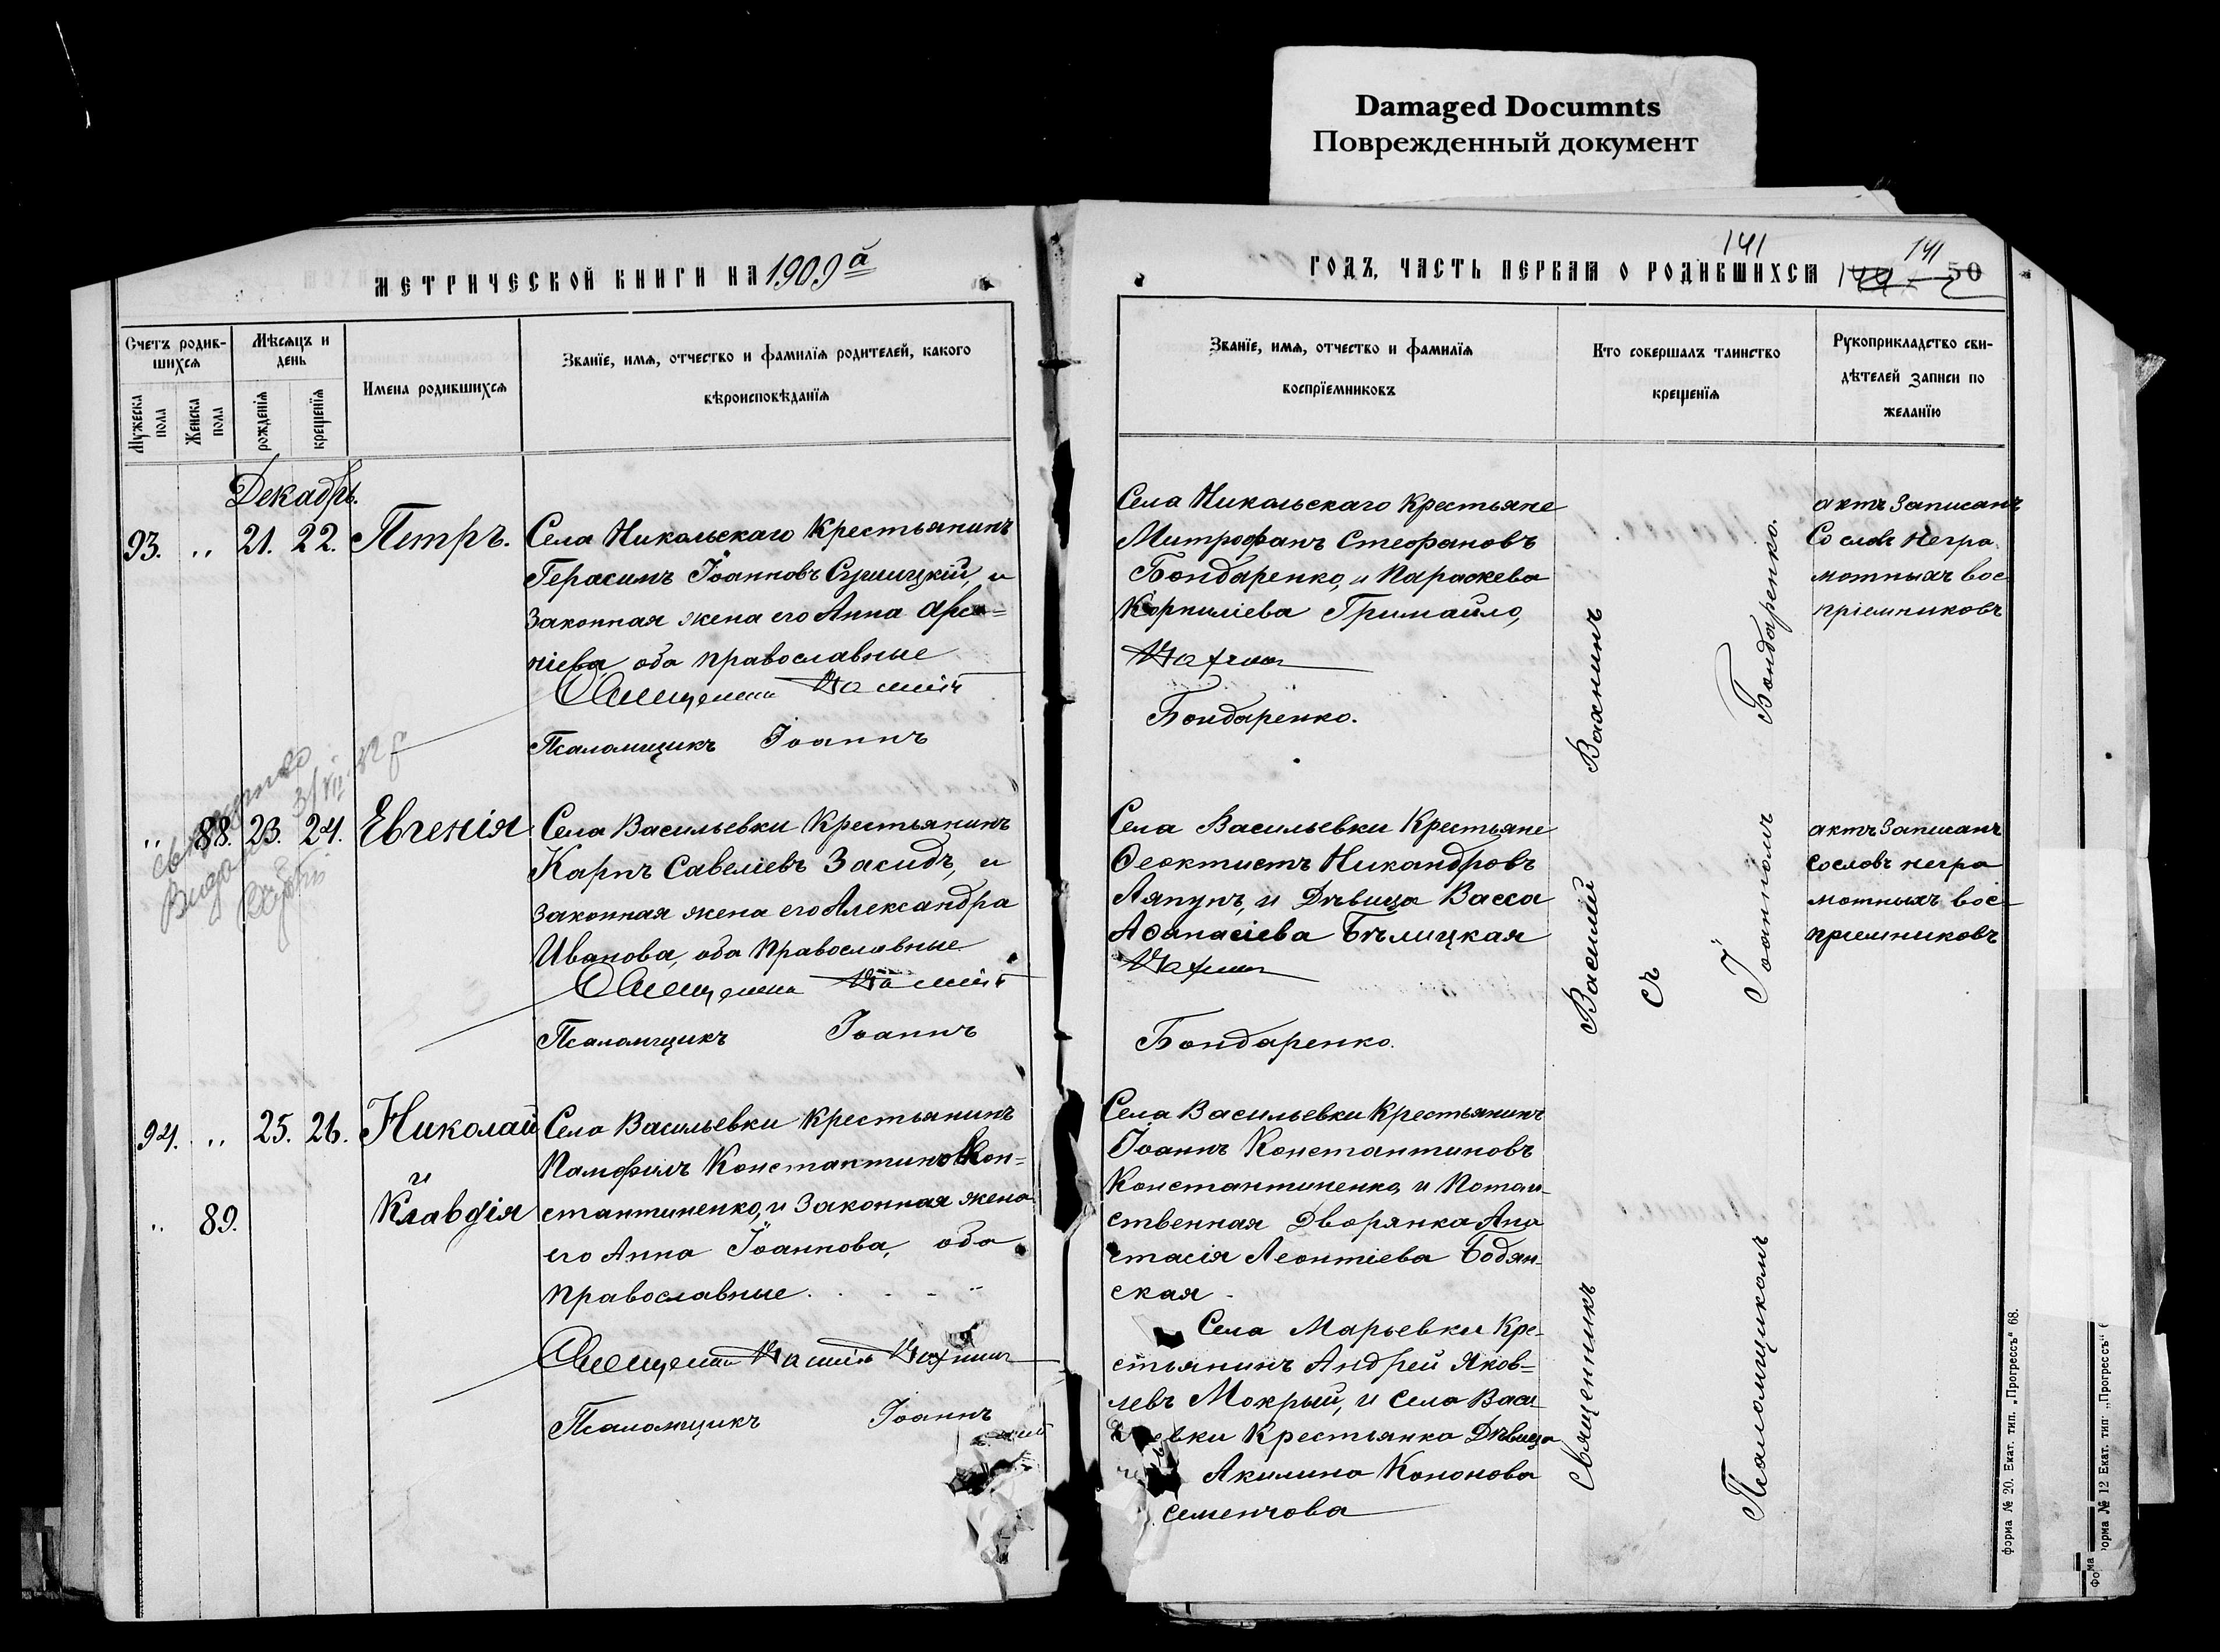 Damaged Documnts
Поврежденный документ
МЕТРИЧЕСКОЙ КНИГИ НА 1909й
Счетъ родив-
шихся
Мѣсяцъ и
день
Имена родившихся
Званіе, имя, отчество и фамилія родителей, какого
вѣроисповѣданія
Мужеска
пола
Женска
пола
рожденія
крещенія
Декабрь.
93. „ 21. 22. Петръ. Села Никольскаго крестьянинъ
Герасимъ Іоанновъ и
законная жена его Анна Арсе=
ніева, оба православные
Священникъ Василій
Псаломщикъ Іоаннъ
„ 88. 23. 24. Евгенія Села Васильевки крестьянинъ
Карпъ Савеліевъ Засидъ, и
законная жена его Александра
Иванова, оба православные
Священникъ Василій
Псаломщикъ Іоаннъ
94. „ 25. 26. Николай Села Васильевки крестьянинъ
Памфилъ Константиновъ Кон=
и
„ 89. Клавдія стантиненко, и законная жена
его Анна Іоаннова, оба
православные.
Священникъ Василій Вахнинъ
Псаломщикъ Іоаннъ
ГОДЪ, ЧАСТЬ ПЕРВАЯ О РОДИВШИХСЯ
141
141
50
Званіе, имя, отчество и фамилія
воспріемниковъ
Кто совершалъ таинство
крещенія
Рукоприкладство сви-
дѣтелей записи по
желанію
Села Никольскаго крестьяне
Митрофанъ Стефановъ
Бондаренко, и Параскева
Корниліева Гримайло,
Вахнинъ
Бондаренко.
Села Васильевки крестьяне
Ѳеоктистъ Никандровъ
Ляпунъ, и Дѣвица Васса
Аѳанасіева Бѣлицкая
Вахнинъ
Бондаренко.
Села Васильевки крестьянинъ
Іоаннъ Константиновъ
Константиненко, и Потом-
ственная Дворянка Ана
стасія Леонтіева Бодян-
ская -
Села Марьевки Кре-
стьянинъ Андрей Яков=
левъ Мокрый, и села Васи
евки крестьянка Дѣвица
Акилина Кононова
Семенчова
Священникъ Василій Вахнинъ
съ
Псаломщикомъ Іоанномъ Бондаренко.
актъ записанъ
со словъ негра
мотныхъ вос
пріемниковъ
актъ записанъ
со словъ негра
мотныхъ вос-
пріемниковъ
Форма № 20. Екат. тип. „Прогрессъ" 68.
орма № 12 Екат. тип. „Прогрессъ"